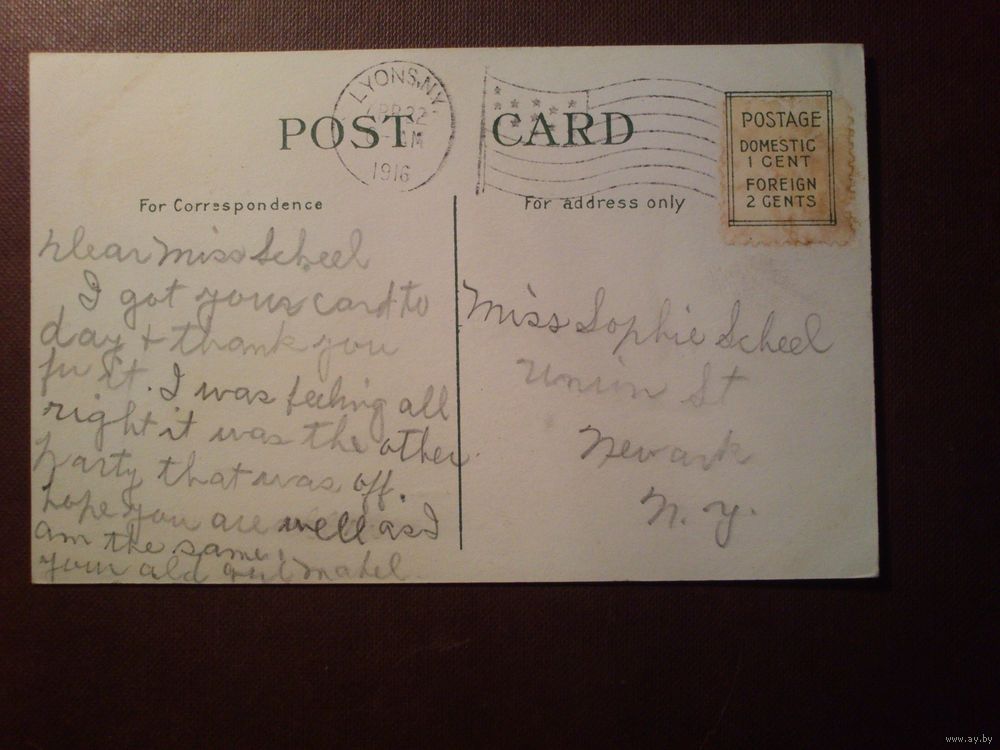 LYONS, N.Y.
APR 22
M
1916
POST CARD
POSTAGE
DOMESTIC
1 CENT
FOREIGN
2 CENTS
For Correspondence
For address only
Dear Miss Scheel
I got your card to
day + thank you
for it. I was feeling all
right it was the other
party that was off.
hope you are well as I
am the same.
your old gurl Mabel.
Miss Sophie Scheel
Union St
Newark
N. Y.
www.ay.by